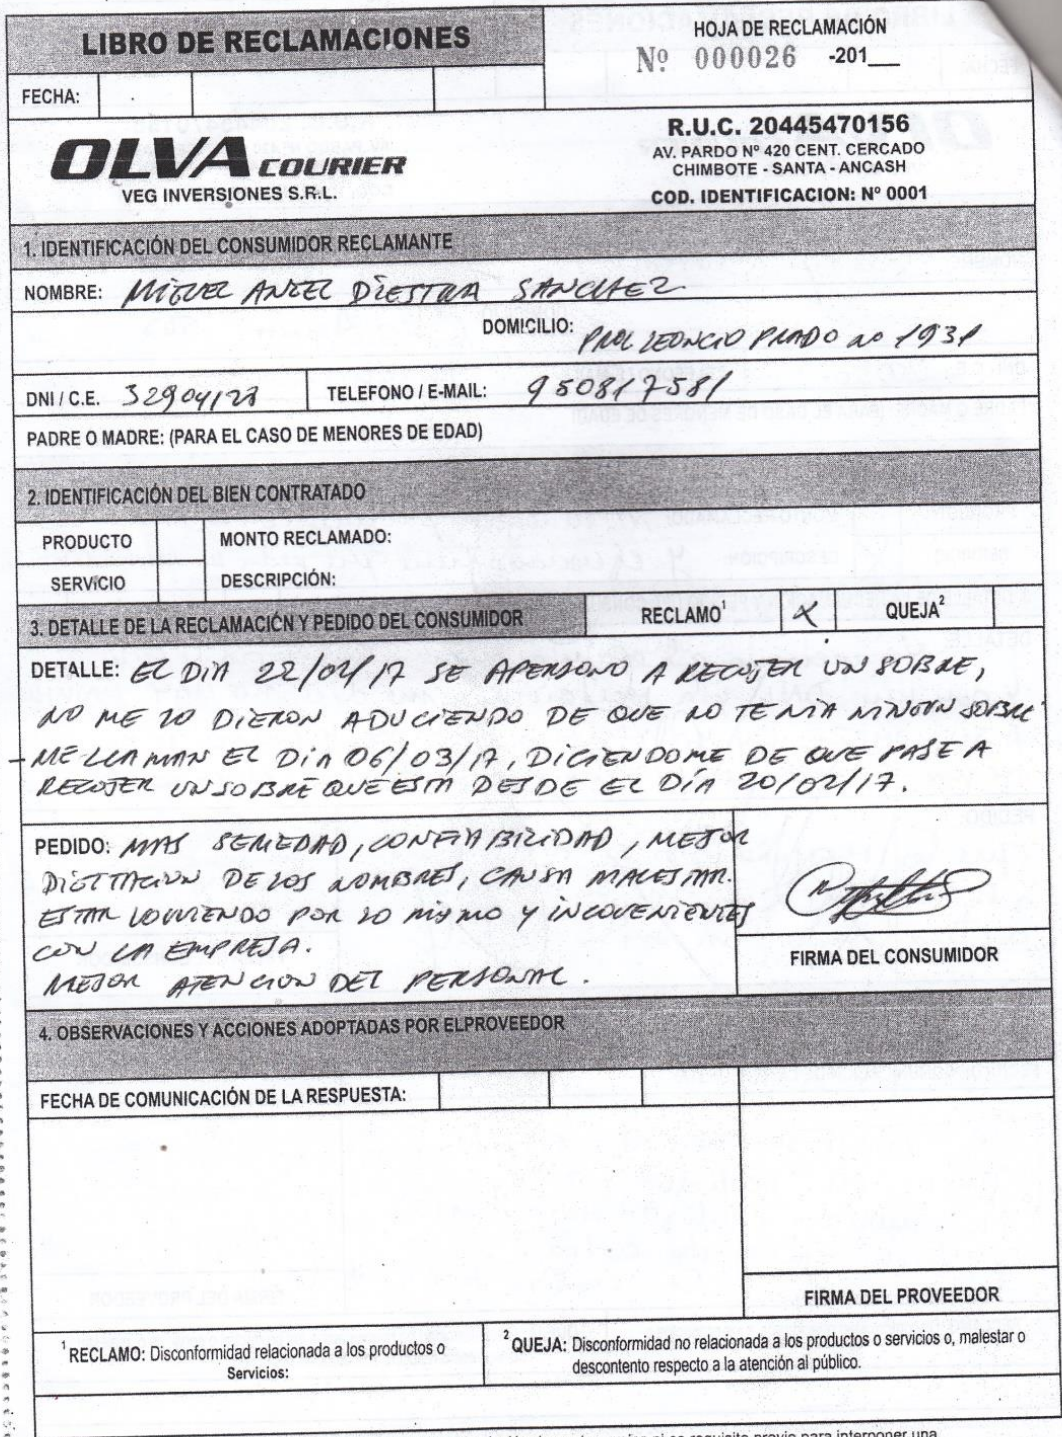 LIBRO DE RECLAMACIONES
HOJA DE RECLAMACIÓN
Nº 000026 -201__
FECHA:
OLVA COURIER
VEG INVERSIONES S.R.L.
R.U.C. 20445470156
AV. PARDO Nº 420 CENT. CERCADO
CHIMBOTE - SANTA - ANCASH
COD. IDENTIFICACION: Nº 0001
1. IDENTIFICACIÓN DEL CONSUMIDOR RECLAMANTE
NOMBRE: MIGUEL ANGEL DIESTRA SANCHEZ
DOMICILIO: PROL LEONCIO PRADO no 1931
DNI / C.E. 32904123
TELEFONO / E-MAIL: 950817581
PADRE O MADRE: (PARA EL CASO DE MENORES DE EDAD)
2. IDENTIFICACIÓN DEL BIEN CONTRATADO
PRODUCTO
MONTO RECLAMADO:
SERVICIO
DESCRIPCIÓN:
3. DETALLE DE LA RECLAMACIÓN Y PEDIDO DEL CONSUMIDOR
RECLAMO¹ X QUEJA²
DETALLE: EL DIA 22/02/17 SE APERSONO A RECOJER UN SOBRE,
NO ME LO DIERON ADUCIENDO DE QUE NO TENIA NINGUN SOBRE
- ME LLAMAN EL DÍA 06/03/17, DICIENDOME DE QUE PASE A
RECOJER UN SOBRE QUE ESTA DESDE EL DÍA 20/02/17.
PEDIDO: MAS SERIEDAD, CONFIABILIDAD, MEJOR
DIGITACION DE LOS NOMBRES, CAUSA MALESTAR.
ESTAR VOLVIENDO POR LO MISMO Y INCOVENIENTES
CON LA EMPRESA.
MEJOR ATENCION DEL PERSONAL.
FIRMA DEL CONSUMIDOR
4. OBSERVACIONES Y ACCIONES ADOPTADAS POR ELPROVEEDOR
FECHA DE COMUNICACIÓN DE LA RESPUESTA:
FIRMA DEL PROVEEDOR
¹ RECLAMO: Disconformidad relacionada a los productos o
Servicios:
² QUEJA: Disconformidad no relacionada a los productos o servicios o, malestar o
descontento respecto a la atención al público.